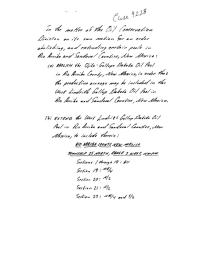 Case 9228
In the matter of the Oil Conservation
Division on its own motion for an order
abolishing, and extending certain pools in
Rio Arriba and Sandoval Counties, New Mexico:
(a) ABOLISH the Gallup Dakota Oil
Pool in Rio Arriba County, New Mexico, in order that
the production acreage may be included in the
West Lindrith Gallup Dakota Oil Pool in
Rio Arriba and Sandoval Counties, New Mexico.
(b) EXTEND the West Lindrith Gallup Dakota Oil
Pool in Rio Arriba and Sandoval Counties, New
Mexico, to include therein:
RIO ARRIBA COUNTY, NEW MEXICO
TOWNSHIP 25 NORTH, RANGE 2 WEST, NMPM
Sections 1 through 18: All
Section 19:
Section 20:
Section 21:
Section 29: and